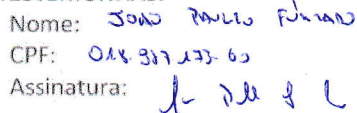 Nome: JOÃO PAULO FURTADO
CPF: 018.987.173-60
Assinatura: